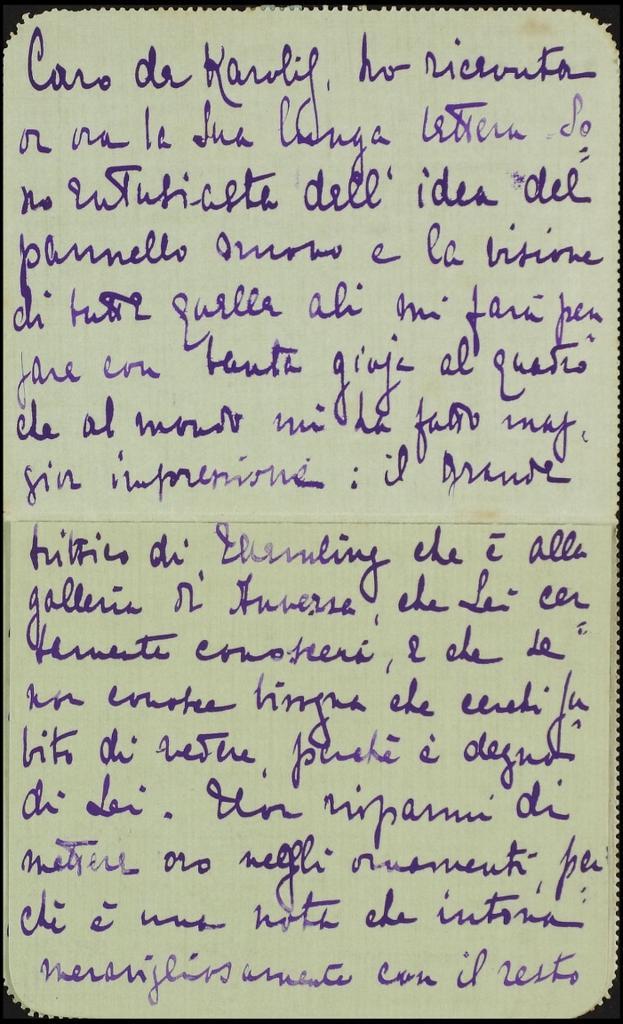 Caro de Karolis, ho ricevuta
or ora la Sua lunga lettera So=
no entusiasta dell' idea del
pannello nuovo e la visione
di tutte quelle ali mi farà pen
sare con tanta gioja al quadro
che al mondo mi ha fatto mag,
gior impressione : il grande
trittico di Memling che è alla
galleria di Anversa, che Lei cer
=
tamente conoscerà, e che se
non conosce bisogna che cerchi su=
bito di vedere, perchè è degno
di Lei. Non risparmi di
mettere oro negli ornamenti, per=
chè è una nota che intona
meravigliosamente con il resto